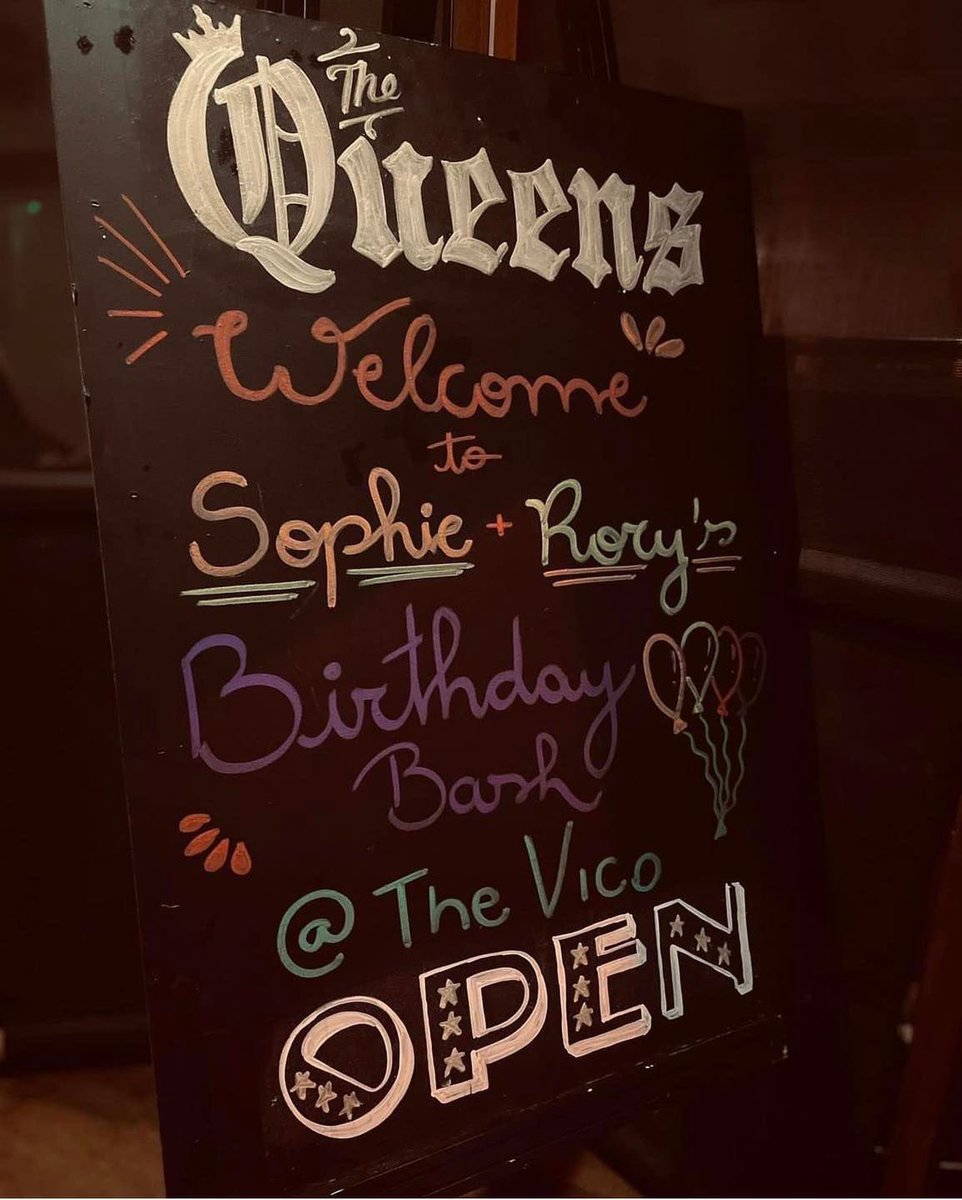 The
Queens
Welcome
to
Sophie + Rory's
Birthday
Bash
@ The Vico
OPEN